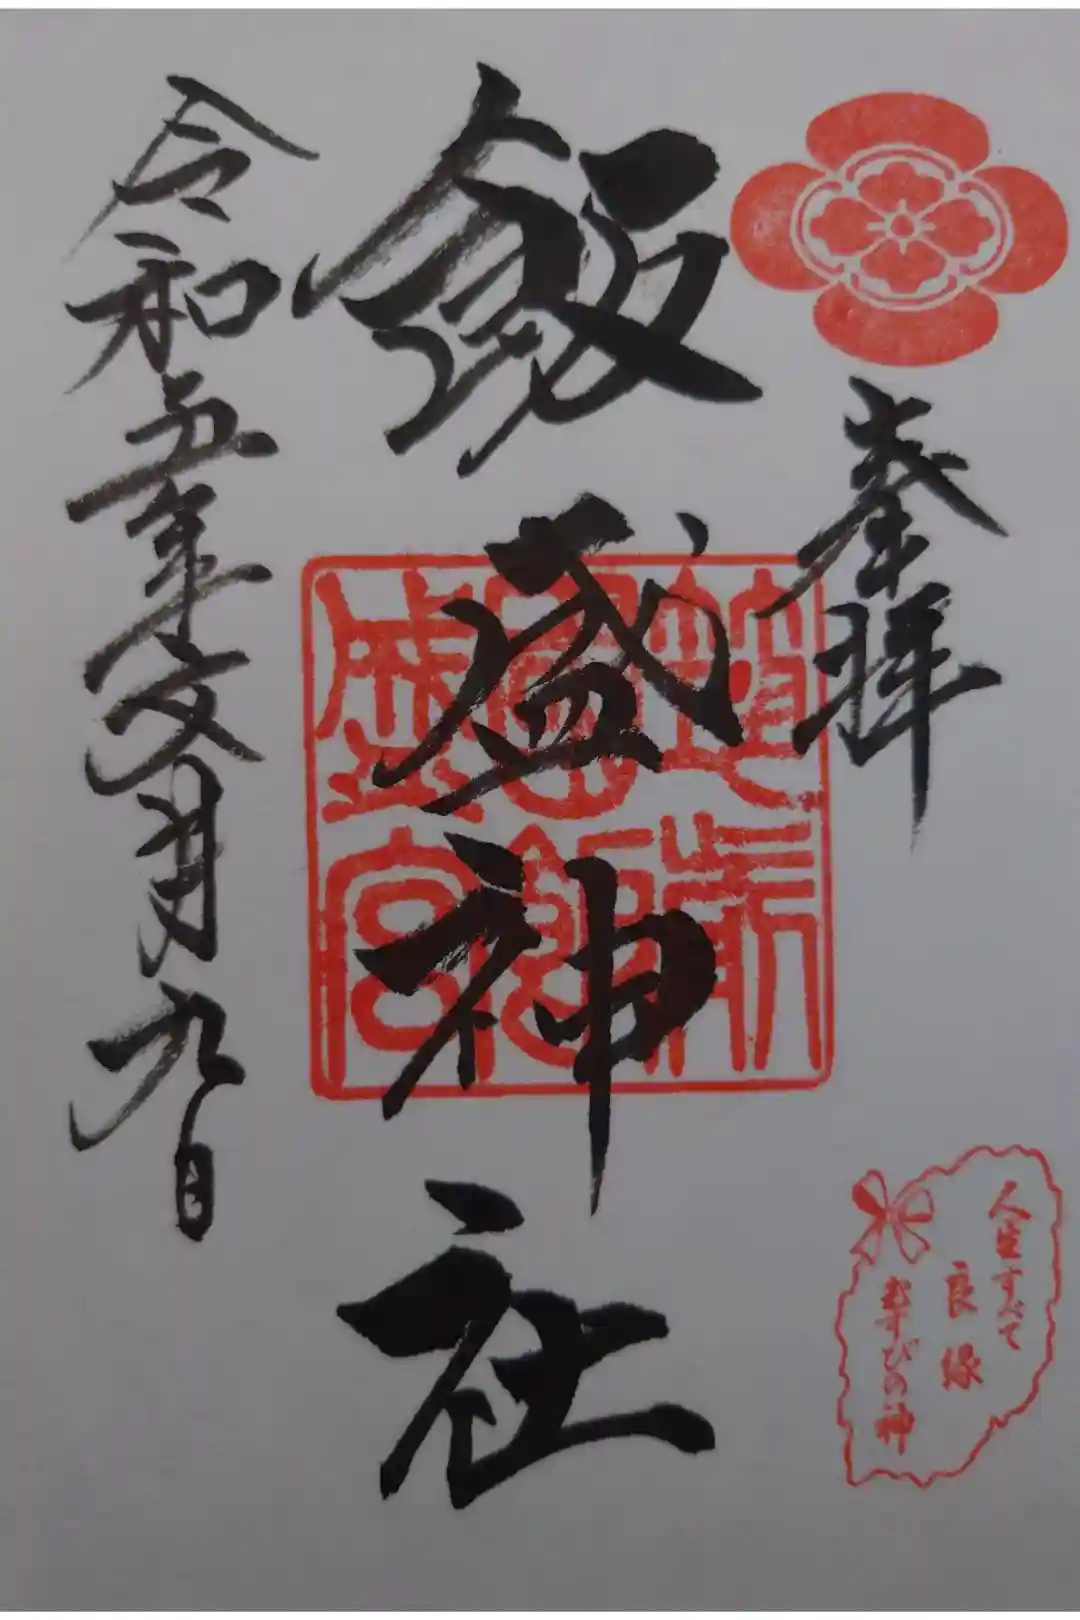 奉拝
飯盛神社
令和五年文月九日
人生すべて
良縁
むすびの神